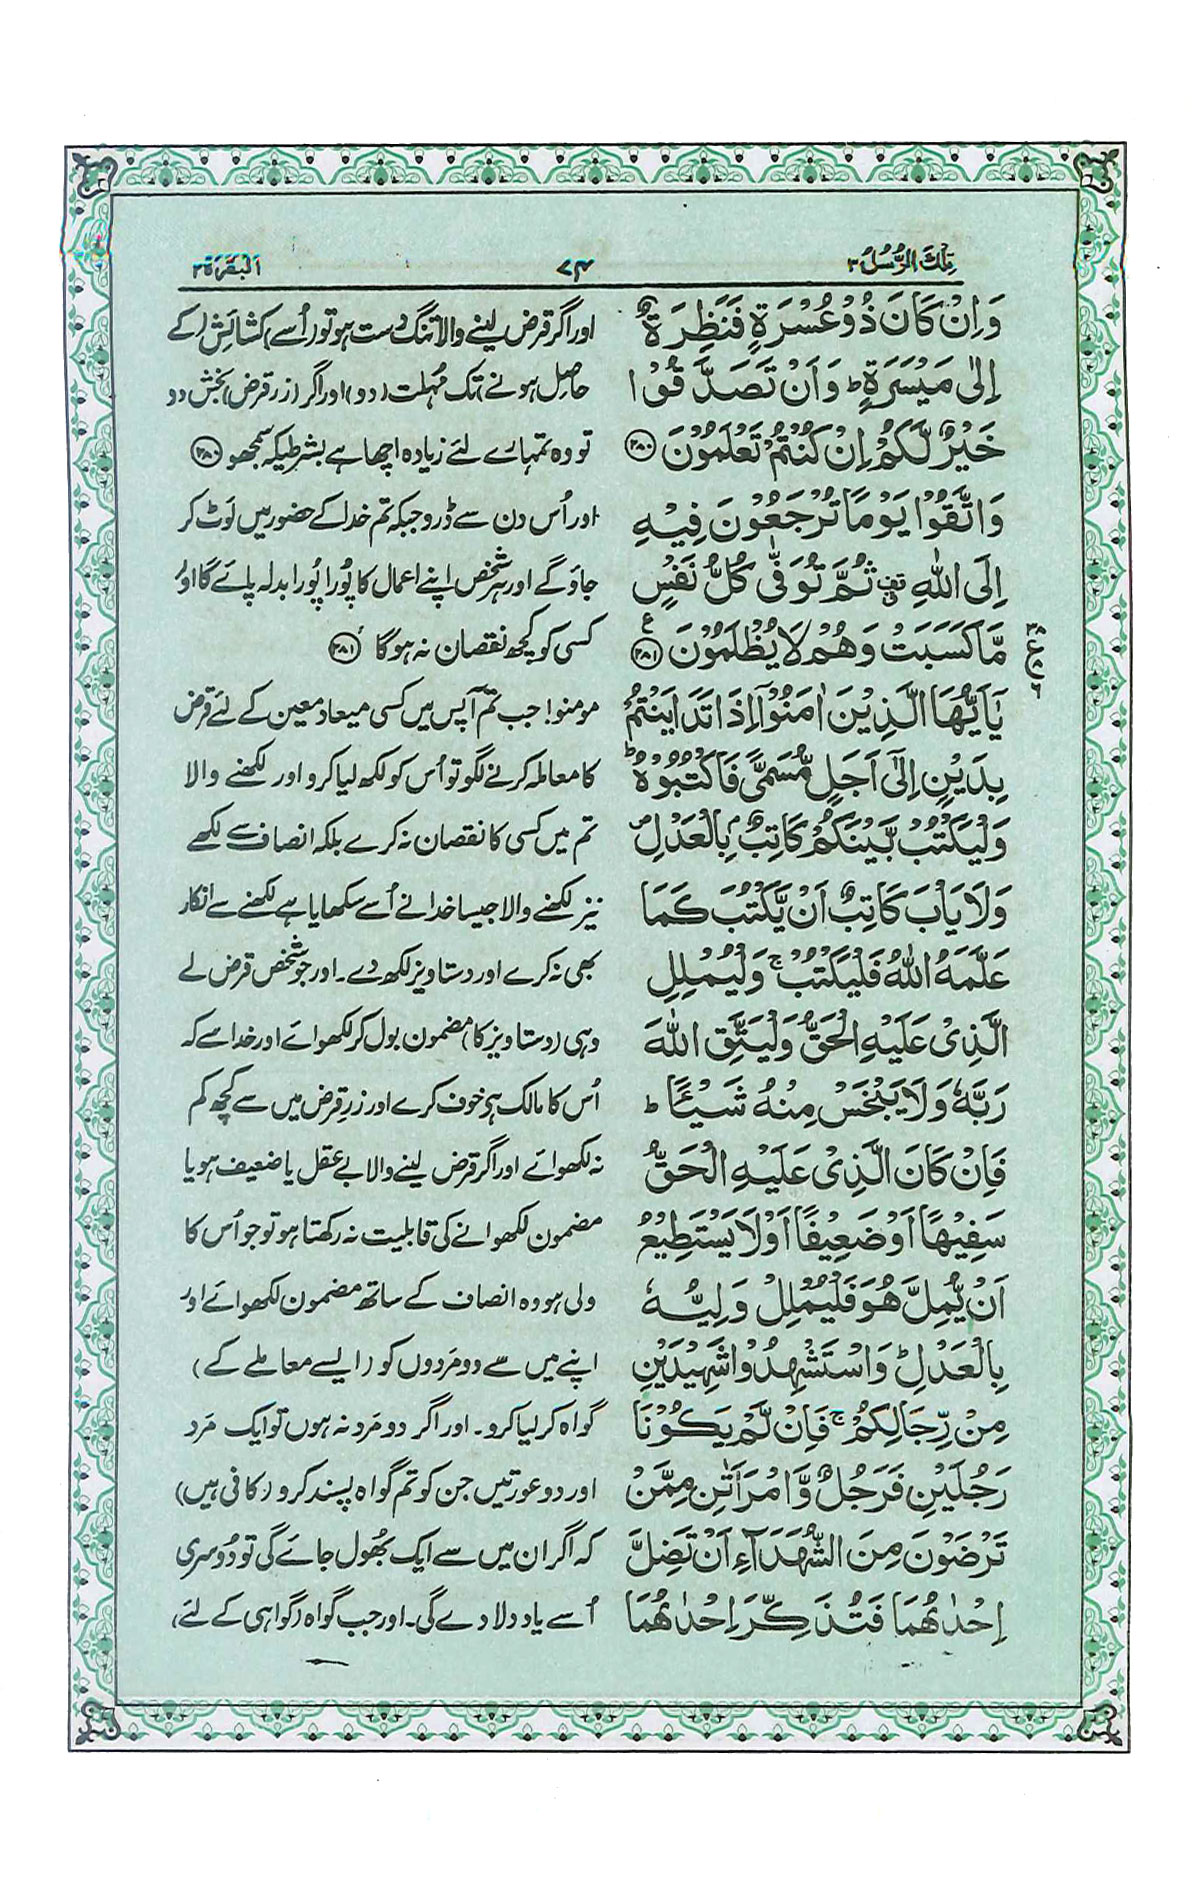 تِلْكَ الرُّسُلُ ٣
٧٤
اَلْبَقَرَة ٢
وَاِنْ كَانَ ذُوْ عُسْرَةٍ فَنَظِرَةٌ
اِلٰى مَيْسَرَةٍ ؕ وَاَنْ تَصَدَّقُوْا
خَيْرٌ لَّكُمْ اِنْ كُنْتُمْ تَعْلَمُوْنَ ﴿۲۸۰﴾
وَاتَّقُوْا يَوْمًا تُرْجَعُوْنَ فِيْهِ
اِلَى اللّٰهِ ۫ ثُمَّ تُوَفّٰى كُلُّ نَفْسٍ
مَّا كَسَبَتْ وَهُمْ لَا يُظْلَمُوْنَ ﴿۲۸۱﴾ ع
يٰۤاَيُّهَا الَّذِيْنَ اٰمَنُوْۤا اِذَا تَدَايَنْتُمْ
بِدَيْنٍ اِلٰۤى اَجَلٍ مُّسَمًّى فَاكْتُبُوْهُ ؕ
وَلْيَكْتُبْ بَّيْنَكُمْ كَاتِبٌۢ بِالْعَدْلِ ۪
وَلَا يَاْبَ كَاتِبٌ اَنْ يَّكْتُبَ كَمَا
عَلَّمَهُ اللّٰهُ فَلْيَكْتُبْ ۚ وَلْيُمْلِلِ
الَّذِىْ عَلَيْهِ الْحَقُّ وَلْيَتَّقِ اللّٰهَ
رَبَّهٗ وَلَا يَبْخَسْ مِنْهُ شَيْـًٔا ؕ
فَاِنْ كَانَ الَّذِىْ عَلَيْهِ الْحَقُّ
سَفِيْهًا اَوْ ضَعِيْفًا اَوْ لَا يَسْتَطِيْعُ
اَنْ يُّمِلَّ هُوَ فَلْيُمْلِلْ وَلِيُّهٗ
بِالْعَدْلِ ؕ وَاسْتَشْهِدُوْا شَهِيْدَيْنِ
مِنْ رِّجَالِكُمْ ۚ فَاِنْ لَّمْ يَكُوْنَا
رَجُلَيْنِ فَرَجُلٌ وَّامْرَاَتٰنِ مِمَّنْ
تَرْضَوْنَ مِنَ الشُّهَدَآءِ اَنْ تَضِلَّ
اِحْدٰىهُمَا فَتُذَكِّرَ اِحْدٰىهُمَا
اور اگر قرض لینے والا تنگ دست ہو تو (اُسے) کشائش (کے
حاصل ہونے) تک مُہلت (دو) اور اگر (زرِ قرض) بخش دو
تو وہ تمہارے لئے زیادہ اچھا ہے بشرطیکہ سمجھو ﴿۲۸۰﴾
اور اُس دن سے ڈرو جبکہ تم خدا کے حضور میں لَوٹ کر
جاؤ گے اور ہر شخص اپنے اعمال کا پُورا پُورا بدلہ پائے گا اور
کسی کو کچھ نقصان نہ ہوگا ﴿۲۸۱﴾
مومنو! جب تم آپس میں کسی میعاد معین کے لئے قرض
کا معاملہ کرنے لگو تو اُس کو لکھ لیا کرو اور لکھنے والا
تم میں کسی کا نقصان نہ کرے بلکہ انصاف سے لکھے
نیز لکھنے والا جیسا خدا نے اُسے سکھایا ہے لکھنے سے انکار
بھی نہ کرے اور دستاویز لکھ دے۔ اور جو شخص قرض لے
وہی (دستاویز کا) مضمون بول کر لکھوائے اور خدا سے کہ
اُس کا مالک ہی خوف کرے اور زرِ قرض میں سے کچھ کم
نہ لکھوائے اور اگر قرض لینے والا بے عقل یا ضعیف ہو یا
مضمون لکھوانے کی قابلیت نہ رکھتا ہو تو جو اُس کا
ولی ہو وہ انصاف کے ساتھ مضمون لکھوائے اور
اپنے میں سے دو مَردوں کو (ایسے معاملے کے)
گواہ کر لیا کرو۔ اور اگر دو مَرد نہ ہوں تو ایک مَرد
اور دو عورتیں جن کو تم گواہ پسند کرو (کافی ہیں)
کہ اگر ان میں سے ایک بھُول جائے گی تو دُوسری
اُسے یاد دلا دے گی۔ اور جب گواہ (گواہی کے لئے)